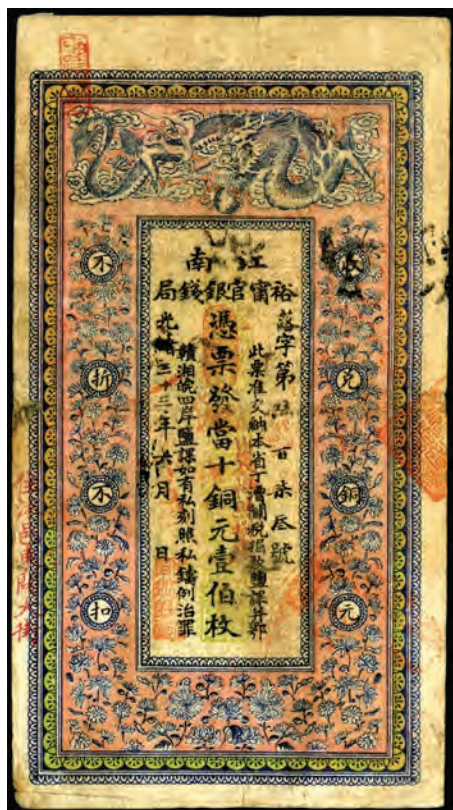 江南
裕甯官銀錢局
字第百柒號
此票准交納本省丁漕關稅捐款鹽課并鄂
憑票發當十銅元壹伯枚
贛湘皖四岸鹽課如有私刻照私鑄例治罪
光緒三十三年六月 日
兌銅元
不折不扣
邑東關大街